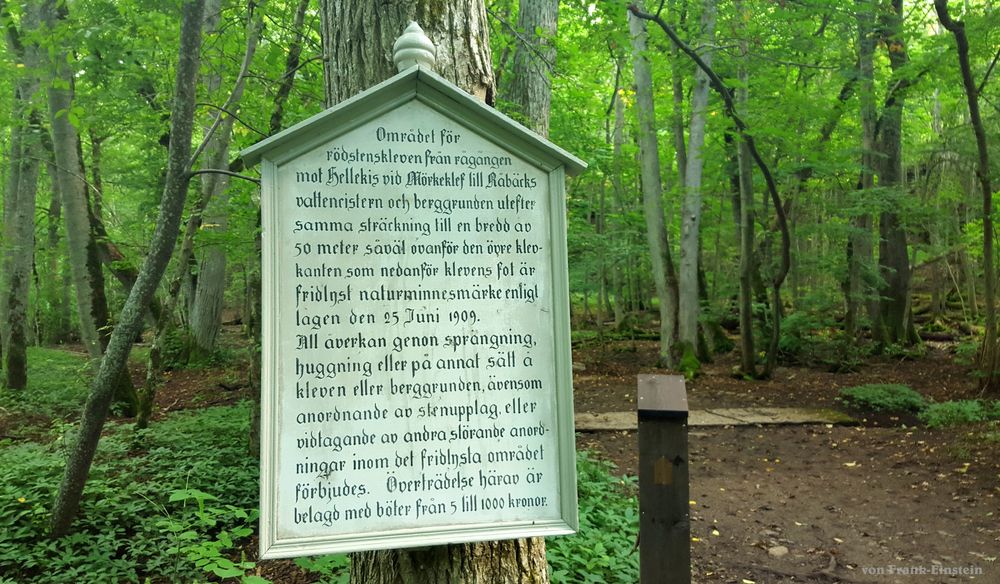 Området för
rödstenskleven från rågången
mot Hellekis vid Mörkeklef till Råbäcks
vattencistern och berggrunden utefter
samma sträckning till en bredd av
50 meter såväl ovanför den övre klev-
kanten som nedanför klevens fot är
fridlyst naturminnesmärke enligt
lagen den 25 Juni 1909.
All åverkan genon sprängning,
huggning eller på annat sätt å
kleven eller berggrunden, ävensom
anordnande av stenupplag, eller
vidtagande av andra störande anord-
ningar inom det fridlysta området
förbjudes. Överträdelse härav är
belagd med böter från 5 till 1000 kronor.
von Frank-Einstein